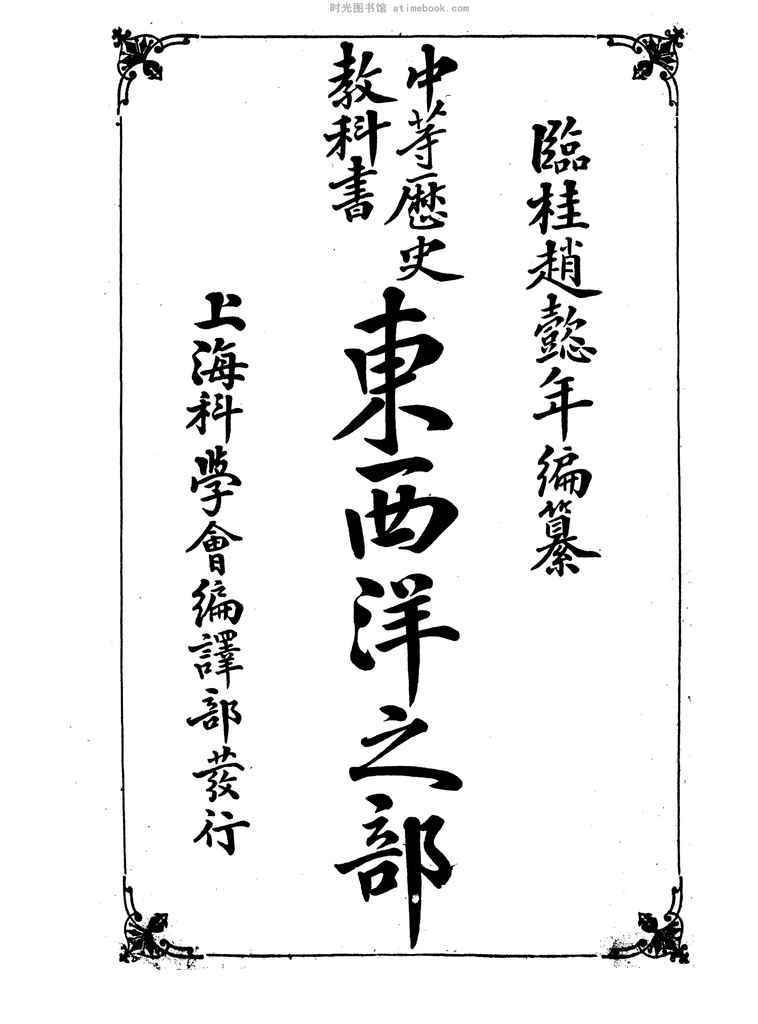 时光图书馆 atimebook.com
臨桂趙懿年編纂
中等歷史
教科書
東西洋之部
上海科學會編譯部發行